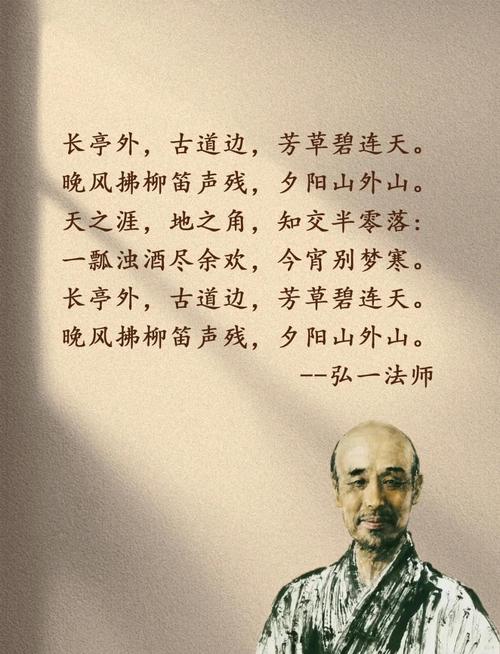 长亭外，古道边，芳草碧连天。
晚风拂柳笛声残，夕阳山外山。
天之涯，地之角，知交半零落：
一瓢浊酒尽余欢，今宵别梦寒。
长亭外，古道边，芳草碧连天。
晚风拂柳笛声残，夕阳山外山。
--弘一法师